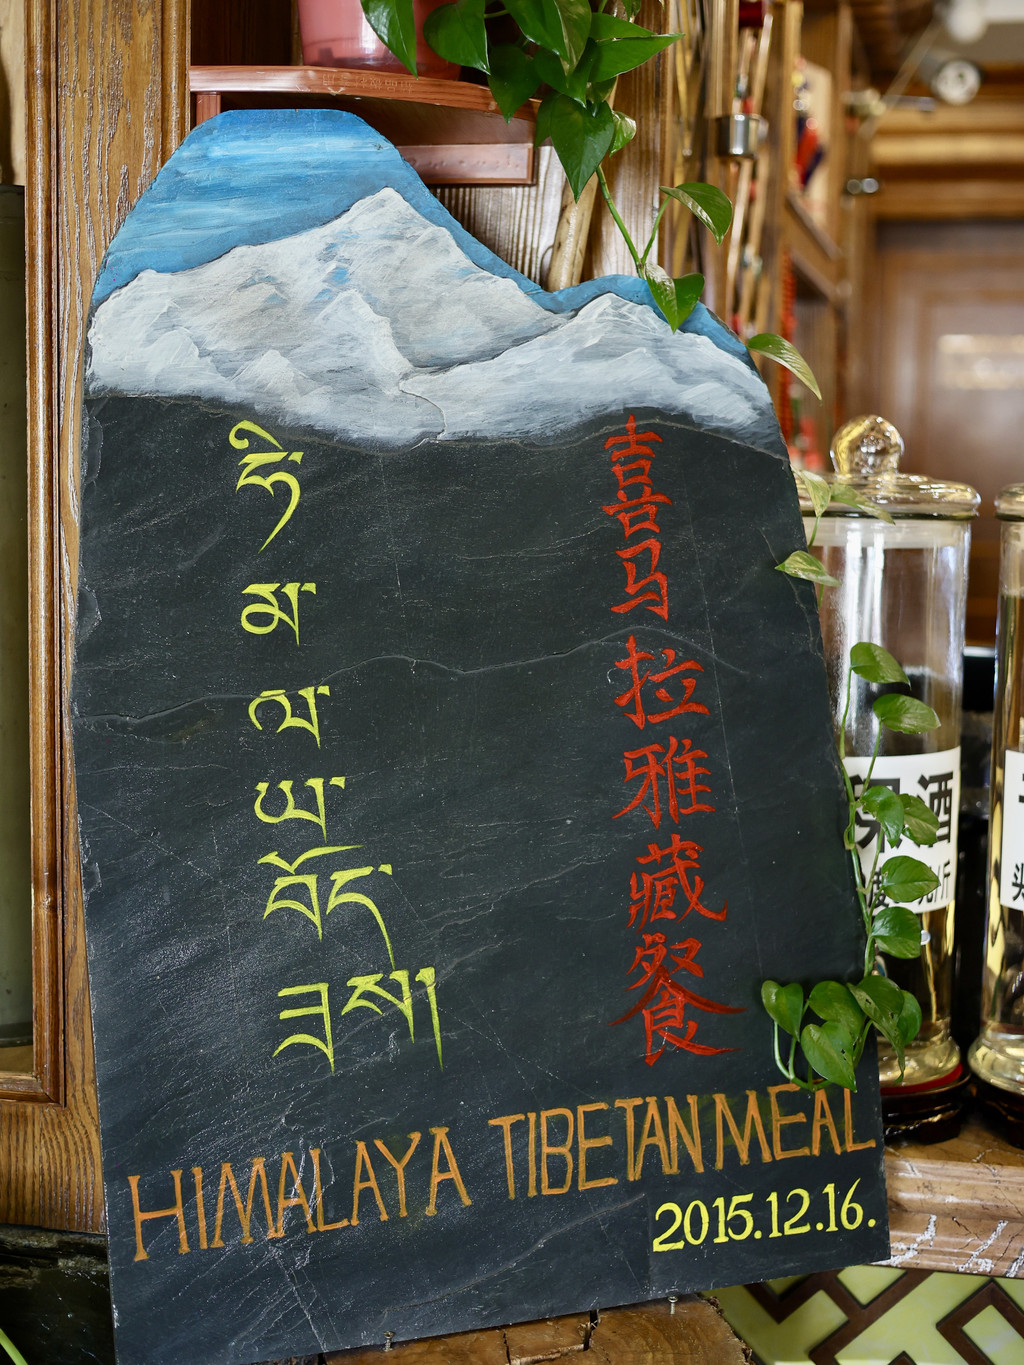 ཧི མ ལ ཡ བོད ཟས
喜马拉雅藏餐
HIMALAYA TIBETAN MEAL
2015.12.16.
酒
元/斤